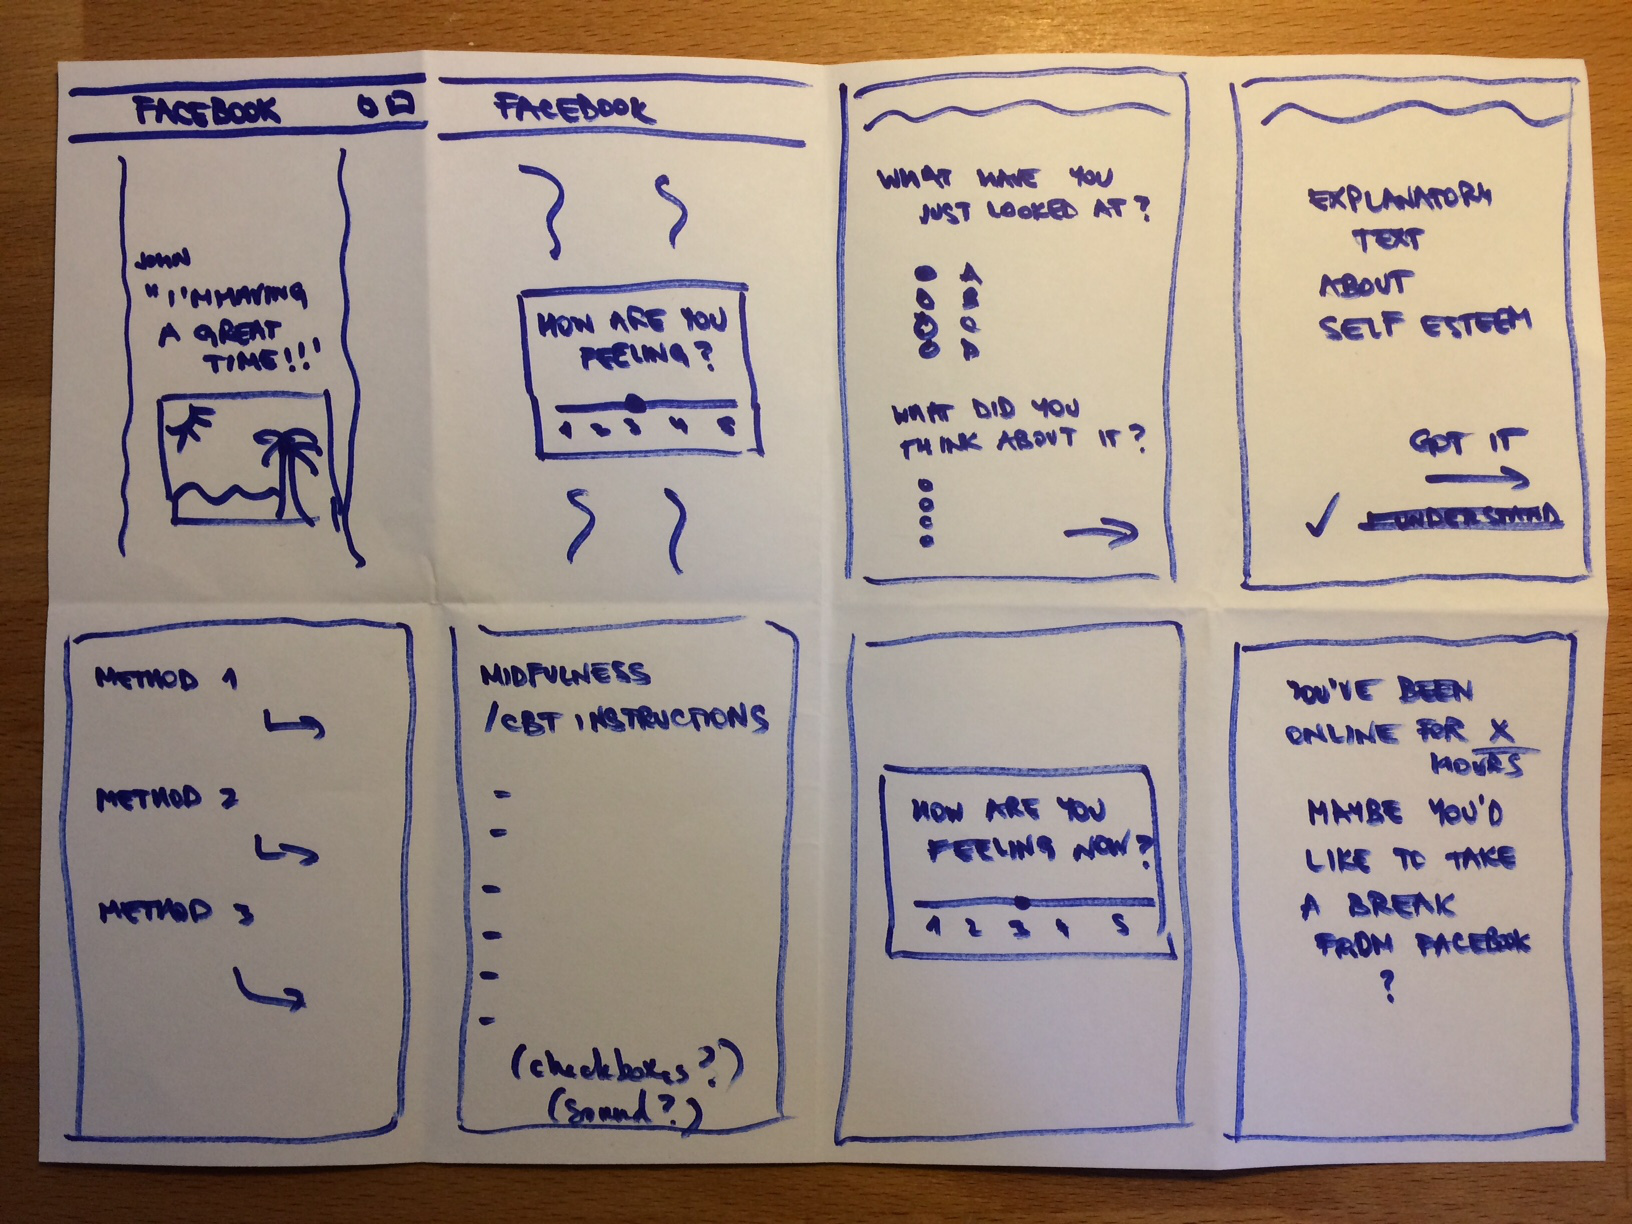 FACEBOOK
JOHN
"I'M HAVING
A GREAT
TIME!!!"
FACEBOOK
HOW ARE YOU
FEELING?
1 2 3 4 5
WHAT HAVE YOU
JUST LOOKED AT?
A
B
C
D
WHAT DID YOU
THINK ABOUT IT?
EXPLANATORY
TEXT
ABOUT
SELF ESTEEM
GOT IT
I UNDERSTAND
METHOD 1
METHOD 2
METHOD 3
MIDFULNESS
/CBT INSTRUCTIONS
(checkboxes?)
(sound?)
HOW ARE YOU
FEELING NOW?
1 2 3 4 5
YOU'VE BEEN
ONLINE FOR X
HOURS
MAYBE YOU'D
LIKE TO TAKE
A BREAK
FROM FACEBOOK
?